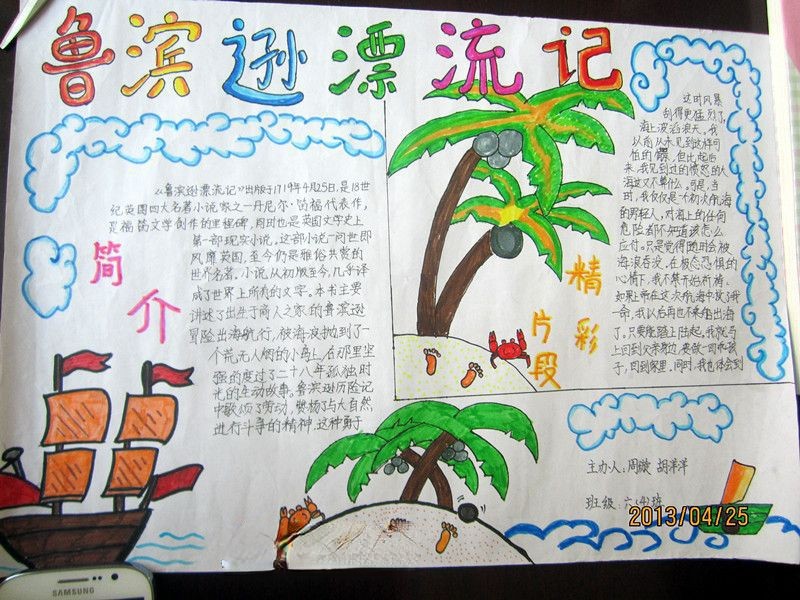 鲁滨逊漂流记
简介
《鲁滨逊漂流记》出版于1719年4月25日,是18世
纪英国四大名著小说家之一丹尼尔·笛福代表作,
是福笛文学创作的里程碑,同时也是英国文学史上
第一部现实小说。这部小说一问世即
风靡英国,至今仍是雅俗共赏的
世界名著。小说从初版至今,几乎译
成了世界上所有的文字。本书主要
讲述了出生于商人之家的鲁滨逊
冒险出海航行,被海浪抛到了一
个荒无人烟的小岛上,在那里坚
强的度过了二十八年孤独时
光的生动故事。鲁滨逊历险记
中歌颂了劳动,赞扬了与大自然
进行斗争的精神,这种勇于
精彩片段
这时风暴
刮得更猛烈了,
海上波滔浪天。我
以前从未见到这样可
怕的 但比起后
来,我见到过的愤怒的大
海这又不算什么。可是,当
时,我仅仅是个初次航海
的男轻人,对海上的任何
危险都不知道该怎么
应付。只是觉得随时会被
海浪吞没。在极忐惧的
心情下,我不禁开始祈祷,
如果上帝在这次航海中放我
一命,我以后再也不乘船出海
了。只要能踏上陆起。我就马
上回到父亲身边,要做一回乖孩
子,回到家里。同时,我也体会到
主办人:周璇 胡洋洋
班级:六(4)班
2013/04/25
SAMSUNG